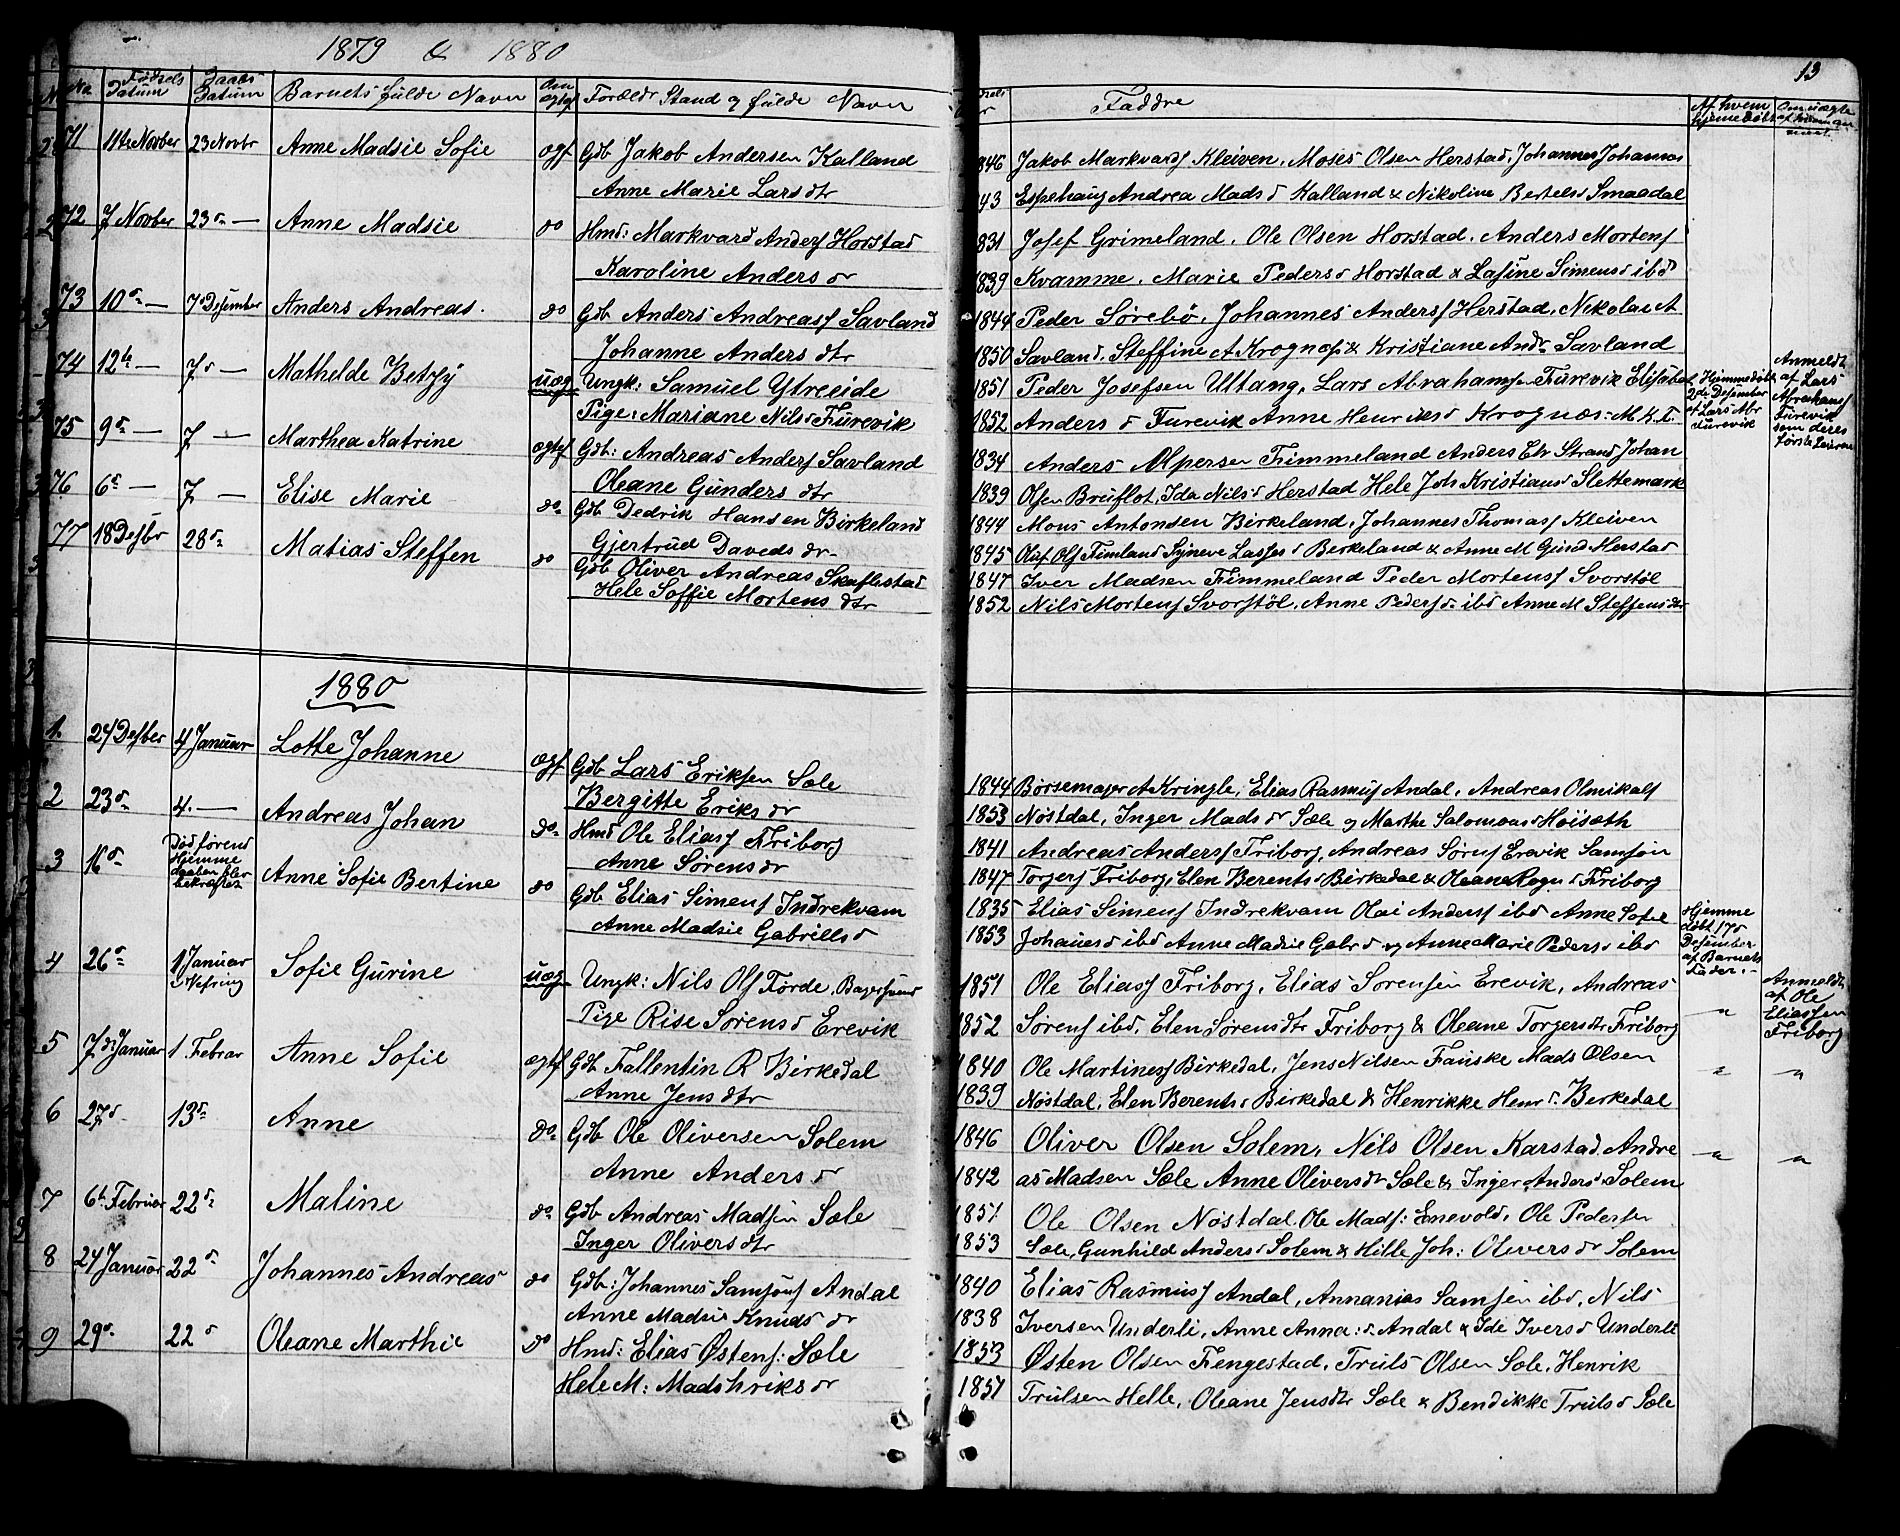 1879 & 1880
13
No Fødsels Datum Daabs Datum Barnets fulde Navn Om ægte Forældr Stand og fulde Navn
Faddre Af hvem hjemedøbt Om uægte af hvem an meldt
71 11te Novber 23 Novbr Anne Madsie Sofie ægt Gdb Jakob Andersen Kalland
Anne Marie Lars dtr
1846 Jakob Markvards Kleiven, Moses Olsen Herstad, Johannes Johannes
43 Espehaug Andrea Mads d Kalland & Nikoline Bertels d Smaadal
72 7 Novber 23 d — Anne Madsie do Hmd: Markvard Anders Horstad
Karoline Anders dr
1831 Josef Grimeland, Ole Olsen Horstad, Anders Mortens
1839 Kvamme, Marie Peders d Horstad & Lasine Simens d ibd
73 10 d — 7 Desember Anders Andreas. do Gdb Anders Andreas Savland
Johanne Anders dtr
1844 Peder Sørebø, Johannes Anders Herstad, Nikolai A
1850 Savland, Steffine A Krognæs & Kristiane Andr Savland
74 12te — 7 d — Mathelde Betzy uæg Ungk: Samuel Ytreeide
Pige: Mariane Nils d Furevik
1851 Peder Josefsen Utlang, Lars Abrahams Furevik Elisabet
1852 Anders d Furevik Anne Henriks d Krognæs M. K. T.
Hjemmedøbt 2de Desember af Lars Abr Furevik
Anmeldt af Lars Abrahams Furevik som deres første Leierm
75 9 d — 7 — Marthea Katrine ægtef Gdb: Andreas Anders Savland
Oleane Gunders dtr
1834 Anders Alpersen Fimmeland Anders Elr Strand Johan
1839 Olsen Bruflot, Ida Nils d Herstad Hele Joh Kristians d Slettemark
76 6 d — 7 — Elise Marie do Gdb Dedrik Hansen Birkeland
Gjertrud Daveds dr
1844 Mons Antonsen Birkeland, Johannes Thomas Kleiven
1845 Oluf Ols Fimland Synneve Lasses d Berkeland & Anne M Gund Herstad
77 18 Desbr 28 d Matias Steffen do Gdb Oliver Andreas Skaflestad
Hele Soffie Mortens dtr
1847 Iver Madsen Fimmeland Peder Mortens Svorstøl
1852 Nils Mortens Svorstøl, Anne Peders d ibd Anne M Steffens dtr
1880
1. 24 Desber 4 Januar Lotte Johanne ægt Gdb Lars Eriksen Sæle
Bergitte Eriks dr
1844 Børsemager A Kringle, Elias Rasmus Andal, Andreas Olmikals
1853 Nøstdal, Inger Mads dr Sæle og Marthe Salomons d Høisæth
2 23 d 4. — Andreas Johan do Hmd Ole Elias Friborg
Anne Sørens dr
1841 Andreas Anders Friborg, Andreas Sørens Erevik Samson
1847 Torgers Friborg, Elen Berents d Birkedal & Oleane Rogn d Friborg
3 16 d Død førend Hjemme daaben blev bekræftet Anne Sofie Bertine do Gdb Elias Simens Indrekvam
Anne Madsie Gabriells d
1835 Elias Simens Indrekvam Olai Anders ibd Anne Sofie
1853 Johannes d ibd Anne Madsie Gabr d og Anne Marie Peders d ibd
Hjemme døbt 17 d Desember af Barnets Fader. -
4 26 d 1 Januar i Nesring Sofie Gurine uæg Ungk: Nils Ols Førde, Bagersvend
Pige Rise Sørens d Erevik
1851 Ole Elias Friborg, Elias Sørensen Erevik, Andreas
1852 Sørens ibd, Elen Sørens dtr Friborg & Oleane Torgers dtr Friborg
"
Anmeldt af Ole Eliassen Friborg
5 7de Januar 1 Febrar Anne Sofie ægtef Gdb Fallentin R Birkedal
Anne Jens dtr
1840 Ole Martines Birkedal, Jens Nilsen Fauske Mads Olsen
1839 Nøstdal, Elen Berents d Birkedal & Henrikke Henr d Berkedal
" "
6 27 d 13 d Anne do Gdb Ole Oliversen Solem
Anne Anders dr
1846 Oliver Olsen Solem, Nils Olsen Karstad, Andre
1842 as Madsen Sæle Anne Olivers dtr Sæle & Inger Anders d Solem
" "
7 6te Februar 22 d Maline do Gdb Andreas Madsen Sæle
Inger Olivers dtr
1851 Ole Olsen Nøstdal, Ole Mads: Enevold, Ole Pedersen
1853 Sæle, Gunhild Anders d Solem & Hille Joh: Olivers dr Solem
8 24 Januar 22 d Johannes Andreas do Gdb: Johannes Samsons Andal
Anne Madsie Knuds dr
1840 Elias Rasmus Andal, Annanias Samsen ibd, Nils
1838 Iversen Underli, Anne Anna: d Andal & Ide Ivers d Underli
9 29 d 22 d Oleane Marthie do Hmd: Elias Østens: Sæle
Hele M: Mads hriks dr
1853 Østen Olsen Fengestad, Truls Olsen Sæle, Henrik
1851 Trulsen Helle, Oleane Jens dtr Sæle & Bendikke Truls d Sæle